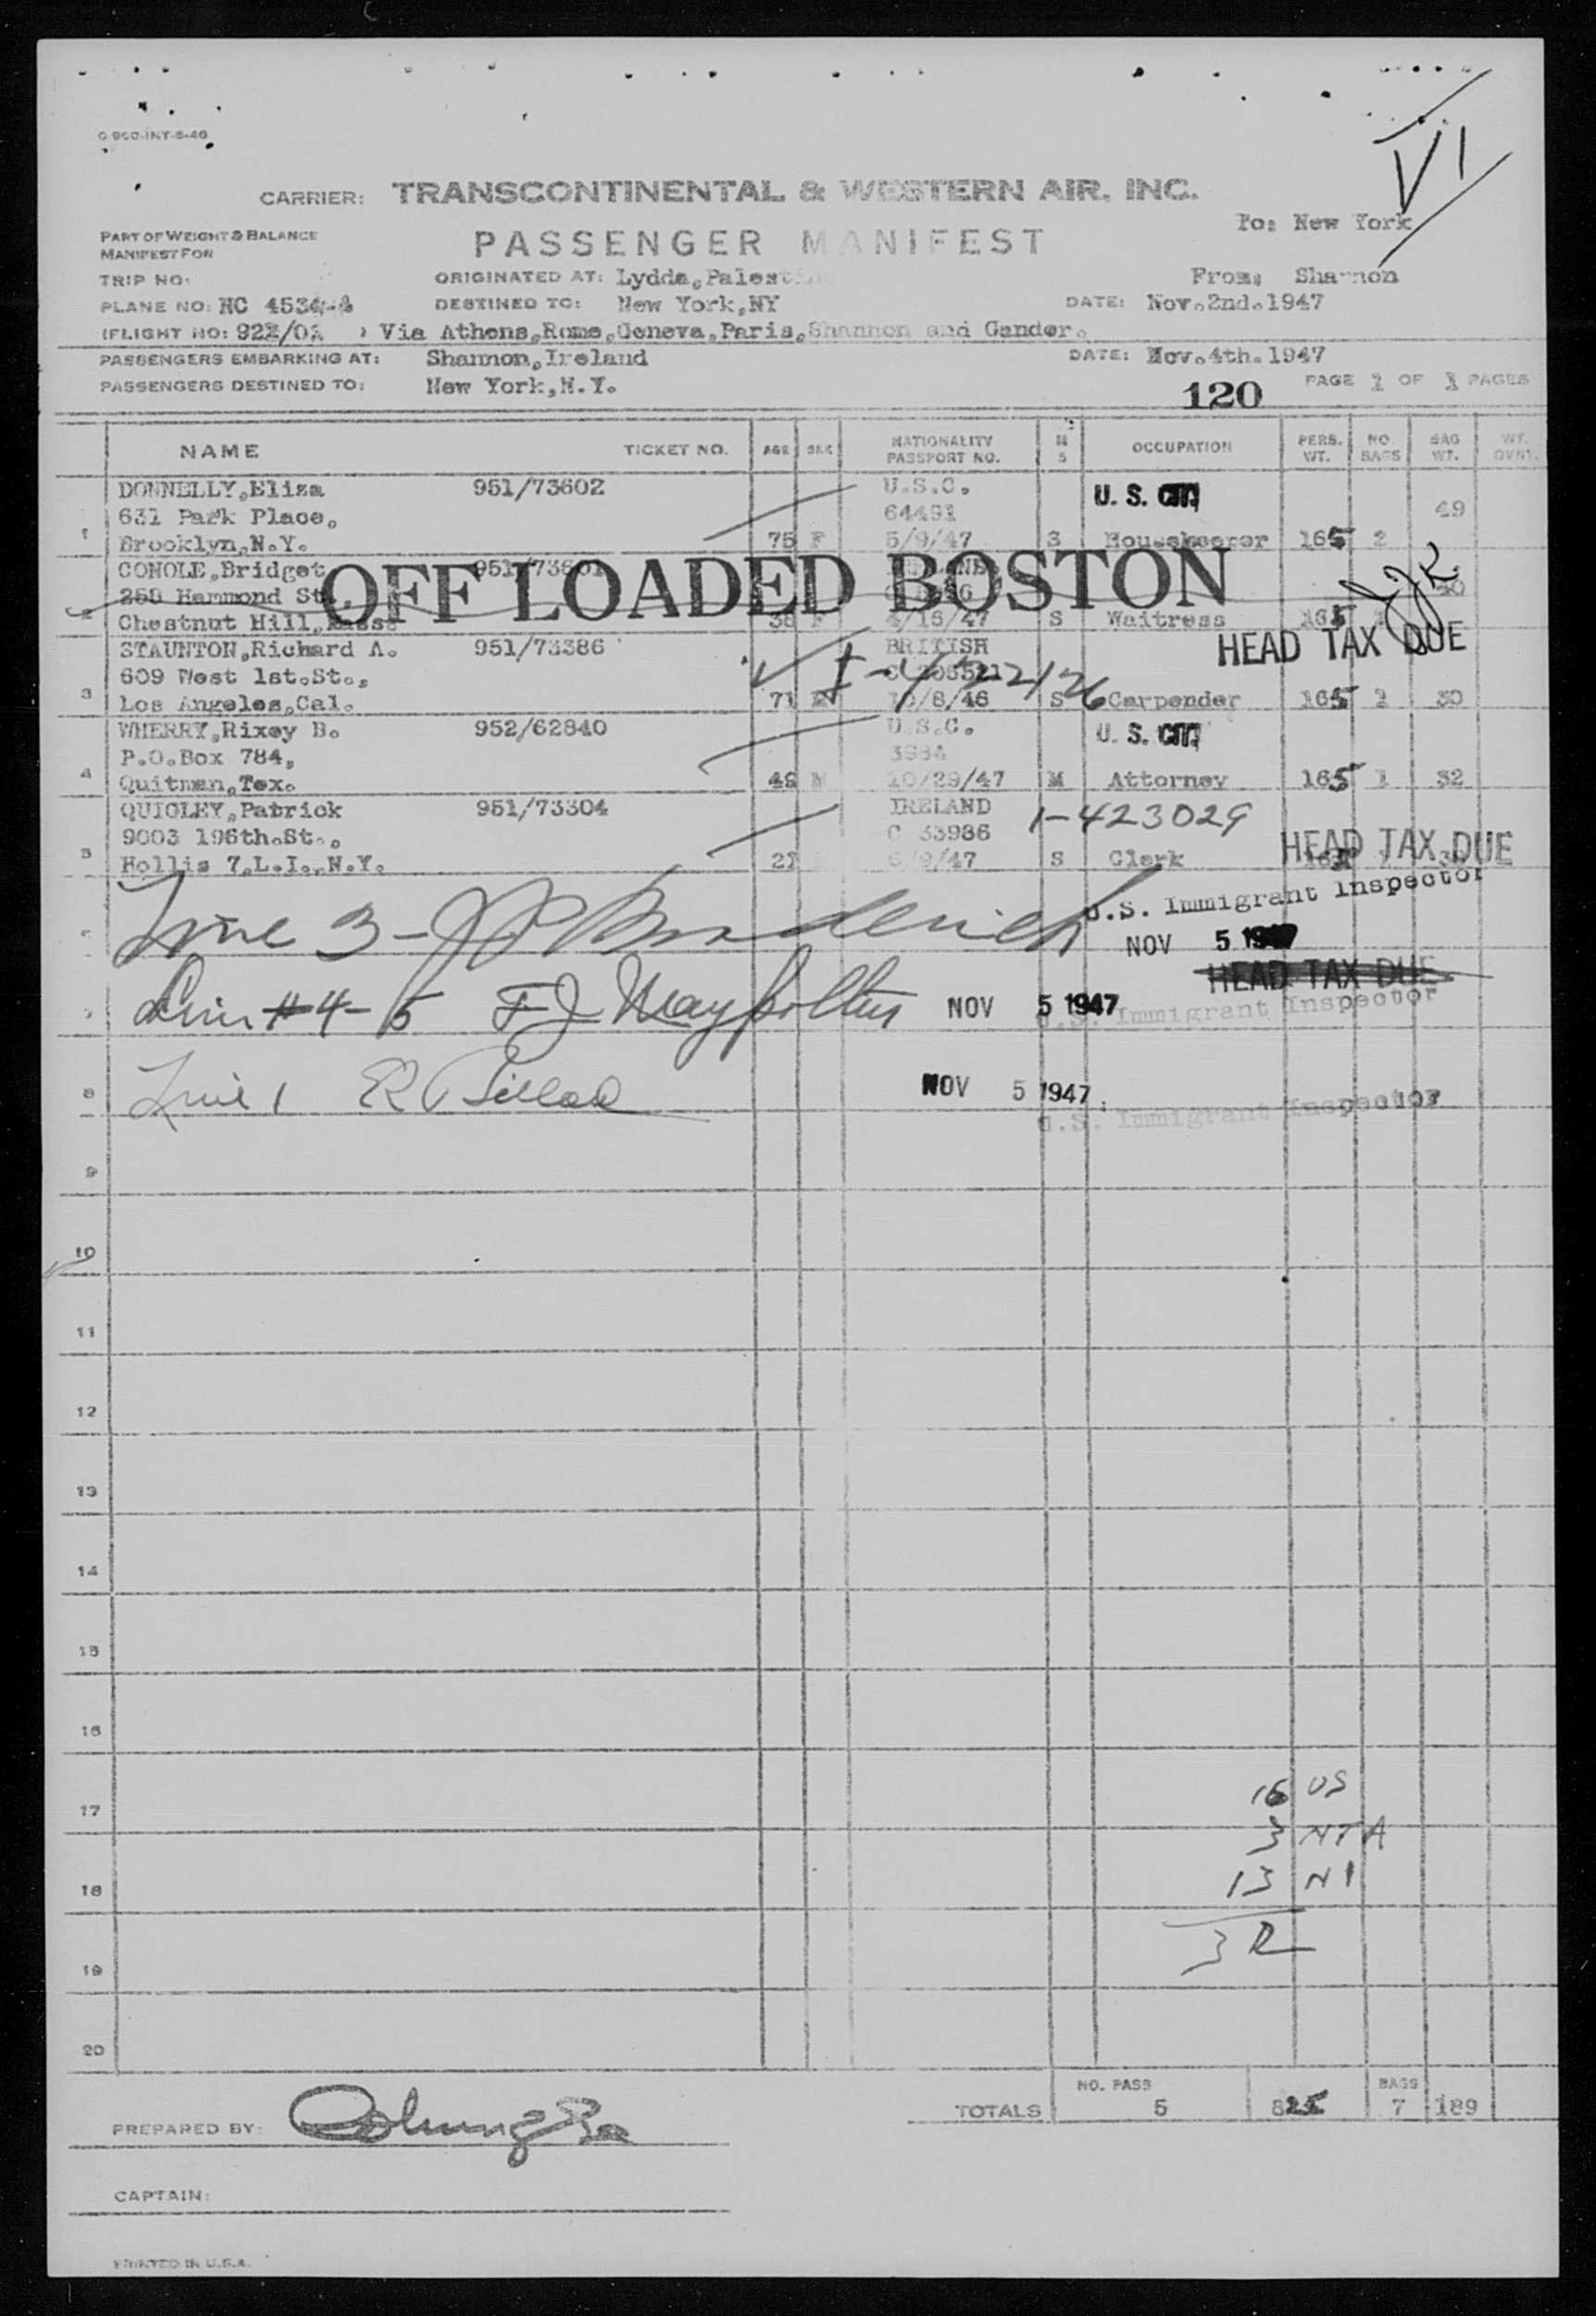 VI
CARRIER: TRANSCONTINENTAL & WESTERN AIR, INC.
To: New York
PART OF WEIGHT & BALANCE
MANIFEST FOR
PASSENGER MANIFEST
TRIP NO: ORIGINATED AT: Lydda, Palestine From: Shannon
PLANE NO: NC DESTINED TO: New York, NY DATE: Nov. 2nd. 1947
(FLIGHT NO: ) Via Athens, Rome, Geneva, Paris, Shannon and Gander.
PASSENGERS EMBARKING AT: Shannon, Ireland DATE: Nov. 4th. 1947
PASSENGERS DESTINED TO: New York, N.Y. 120 PAGE 1 OF PAGES
NAME TICKET NO. AGE SEX NATIONALITY PASSPORT NO. M S OCCUPATION PERS. WT. NO. BAGS BAG WT. WT. OVNT.
DONNELLY, Eliza 951/73602 U.S.C. U. S. CIT.
631 Park Place, 64491 49
1 Brooklyn, N.Y. 75 F 5/9/47 S Housekeeper 165 2
CONOLE, Bridget
Hammond St.
OFF LOADED BOSTON
2 Chestnut Hill, Mass 38 F 4/15/47 S Waitress 165
HEAD TAX DUE
STAUNTON, Richard A. 951/73386 BRITISH
609 West 1st. St.,
3 Los Angeles, Cal. 71 /8/46 S Carpender 165 30
WHERRY, Rixey B. 952/62840 U.S.C. U. S. CIT.
P.O. Box 784,
4 Quitman, Tex. 10/29/47 M Attorney 165 1 32
QUIGLEY, Patrick 951/73304 IRELAND 1-423029
9003 196th. St., C 33986
5 Hollis 7, L.I., N.Y. 6/9/47 S Clerk
HEAD TAX DUE
Line 3 - U.S. Immigrant Inspector
NOV 5 1947
HEAD TAX DUE
Line #4-5 NOV 5 1947
U.S. Immigrant Inspector
Line 1 NOV 5 1947
U.S. Immigrant Inspector
9
10
11
12
13
14
15
16
16 US
17
3 NTA
13 NI
18
3 R
19
20
NO. PASS BAGS
TOTALS 5 825 7 189
PREPARED BY:
CAPTAIN:
PRINTED IN U.S.A.